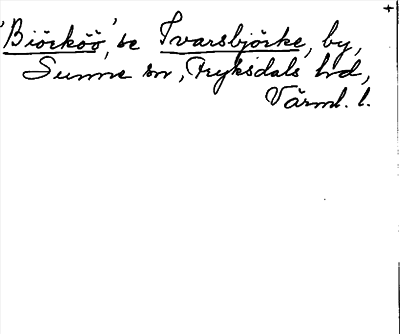 'Biörköö', se Ivarsbjörke, by,
Sunne sn, Fryksdals hd,
Värml. l.